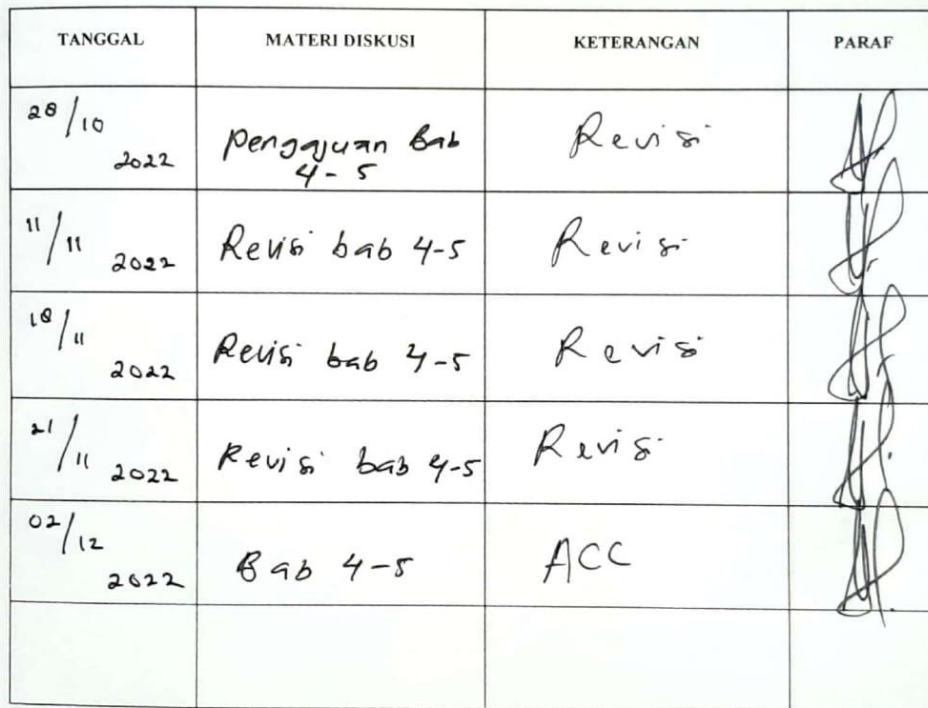 TANGGAL MATERI DISKUSI KETERANGAN PARAF
28/10 2022 Pengajuan Bab 4-5 Revisi
11/11 2022 Revisi bab 4-5 Revisi
18/11 2022 Revisi bab 4-5 Revisi
21/11 2022 Revisi bab 4-5 Revisi
02/12 2022 Bab 4-5 ACC